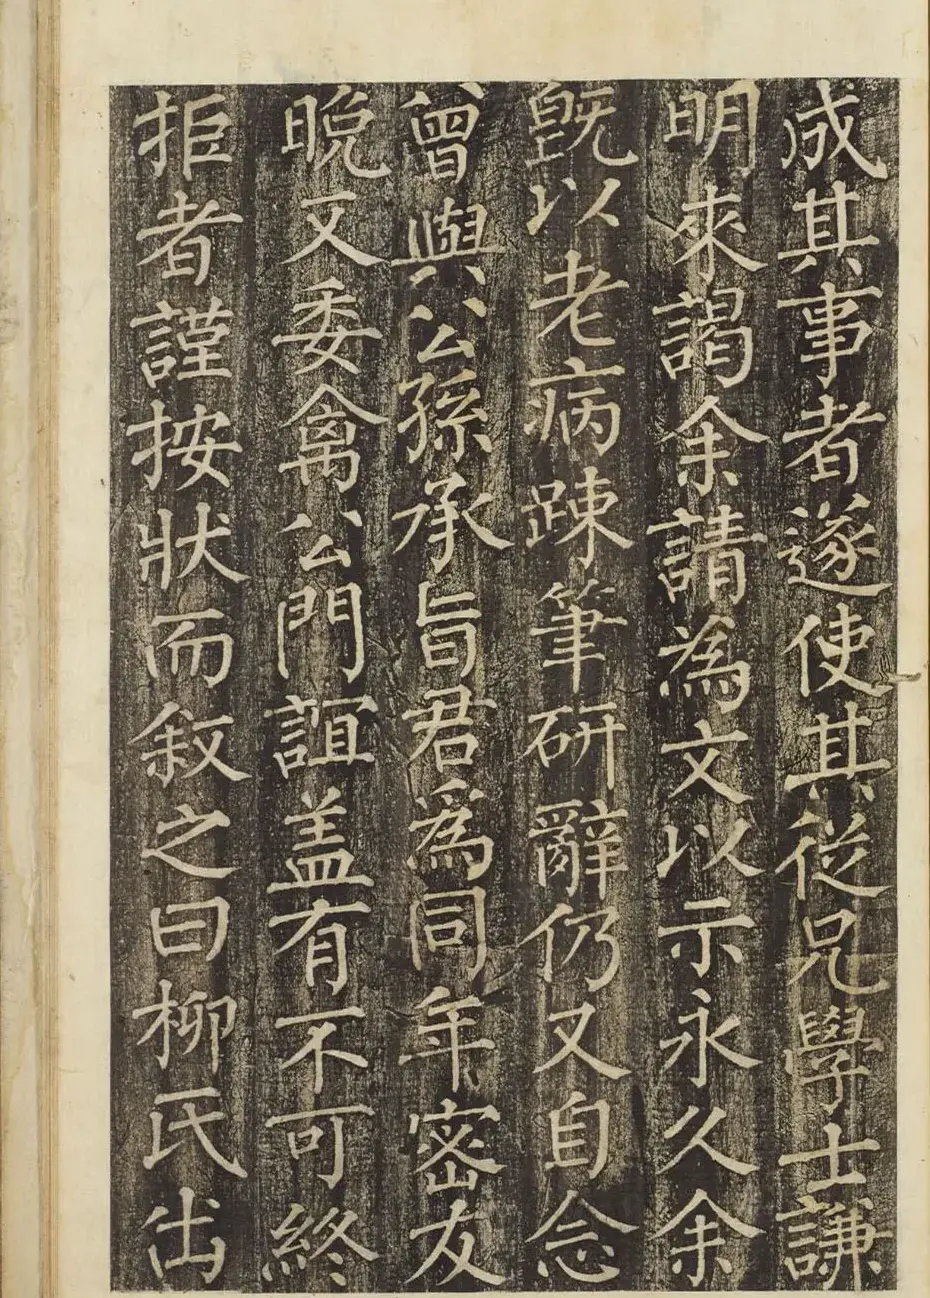 成其事者遂使其從兄學士謙
明來謁余請為文以示永久余
既以老病踈筆研辭仍又自念
曾與公孫承旨君為同年密友
晚又委禽公門誼盖有不可終
拒者謹按狀而叙之曰柳氏出